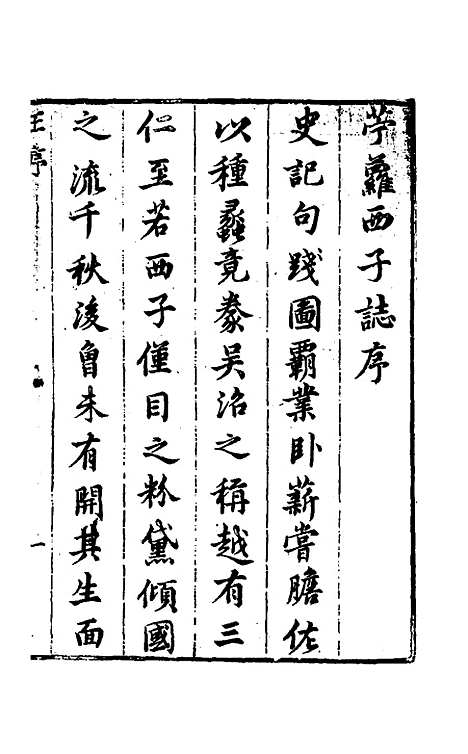 苧蘿西子誌序
史記句踐圖霸業卧薪嘗膽佐
以種蠡竟豢吴沼之稱越有三
仁至若西子僅目之粉黛傾國
之流千秋後曾未有開其生面
王序
一